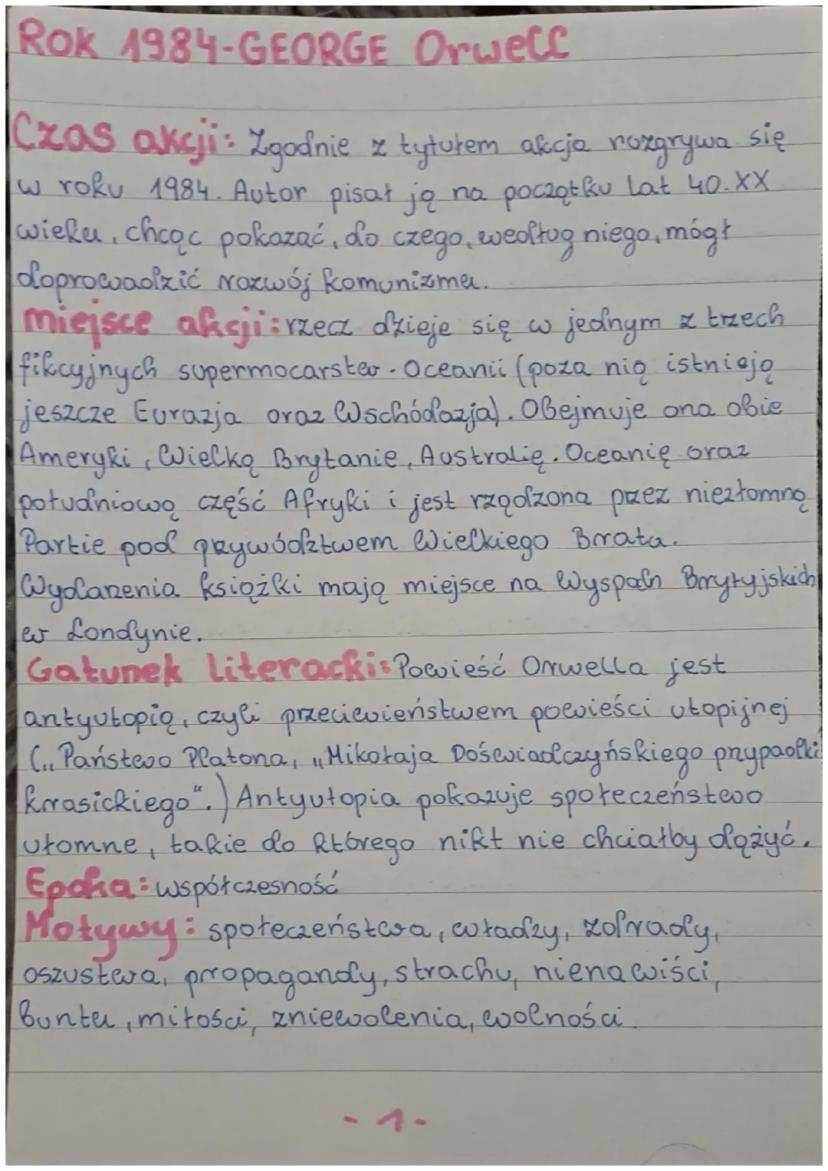 ROK 1984-GEORGE Orwell
Czas akcji: Zgodnie z tytułem akcja rozgrywa się
w roku 1984. Autor pisał ją na początku lat 40.XX
wieku, chcąc pokazać, do czego, według niego, mógł
doprowadzić rozwój komunizmu.
miejsce akcji: rzecz dzieje się w jednym z trzech
fikcyjnych supermocarstw - Oceanii (poza nią istnieją
jeszcze Eurazja oraz Wschódazja). Obejmuje ona obie
Ameryki, Wielką Brytanie, Australię. Oceanię oraz
południową część Afryki i jest rządzona przez niezłomną
Partie pod przywództwem Wielkiego Brata.
Wydarzenia książki mają miejsce na Wyspach Brytyjskich
w Londynie.
Gatunek literacki: Powieść Orwella jest
antyutopią, czyli przeciwieństwem powieści utopijnej
(„Państwo Platona, „Mikołaja Doświadczyńskiego przypadki
Krasickiego".) Antyutopia pokazuje społeczeństwo
ułomne, takie do którego nikt nie chciałby dążyć.
Epoka: współczesność
Motywy: społeczeństwa, władzy, zdrady,
oszustwa, propagandy, strachu, nienawiści,
buntu, miłości, zniewolenia, wolności.
-1-